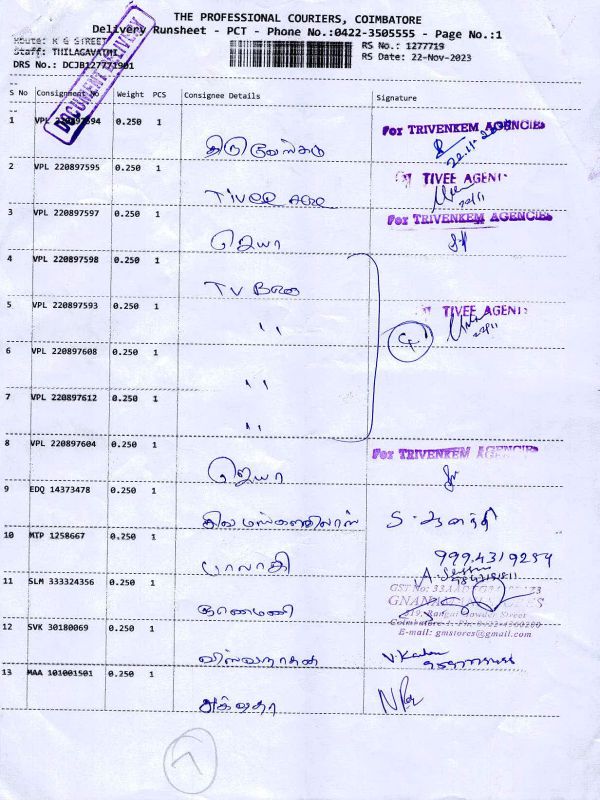 THE PROFESSIONAL COURIERS, COIMBATORE
Delivery Runsheet - PCT - Phone No.:0422-3505555 - Page No.:1
Route: K G STREET
RS No.: 1277719
Staff: THILAGAVATHI
RS Date: 22-Nov-2023
DRS No.: DCJB127771901
DOCUMENT DELIVERY
S No Consignment No Weight PCS Consignee Details Signature
1 VPL 220897594 0.250 1
For TRIVENKEM AGENCIES
22.11.
2 VPL 220897595 0.250 1
TIVEE AGENCI
Tivee Age
22/11
3 VPL 220897597 0.250 1
For TRIVENKEM AGENCIES
ஜெயா
4 VPL 220897598 0.250 1
TV
5 VPL 220897593 0.250 1
TIVEE AGENCI
"
22/11
6 VPL 220897608 0.250 1
"
7 VPL 220897612 0.250 1
"
8 VPL 220897604 0.250 1
For TRIVENKEM AGENCIES
ஜெயா
9 EDQ 14373478 0.250 1
S. ஆனந்தி
10 MTP 1258667 0.250 1
பாலாகி 9994319254
11 SLM 333324356 0.250 1
GST No: 33AAD
GNANA
219, Rangai Gowder Street
Coimbatore-1. Ph: 0422-4500280
E-mail: gmstores@gmail.com
ஞானமணி
12 SVK 30180069 0.250 1
விஸ்வநாதன்
13 MAA 101001501 0.250 1